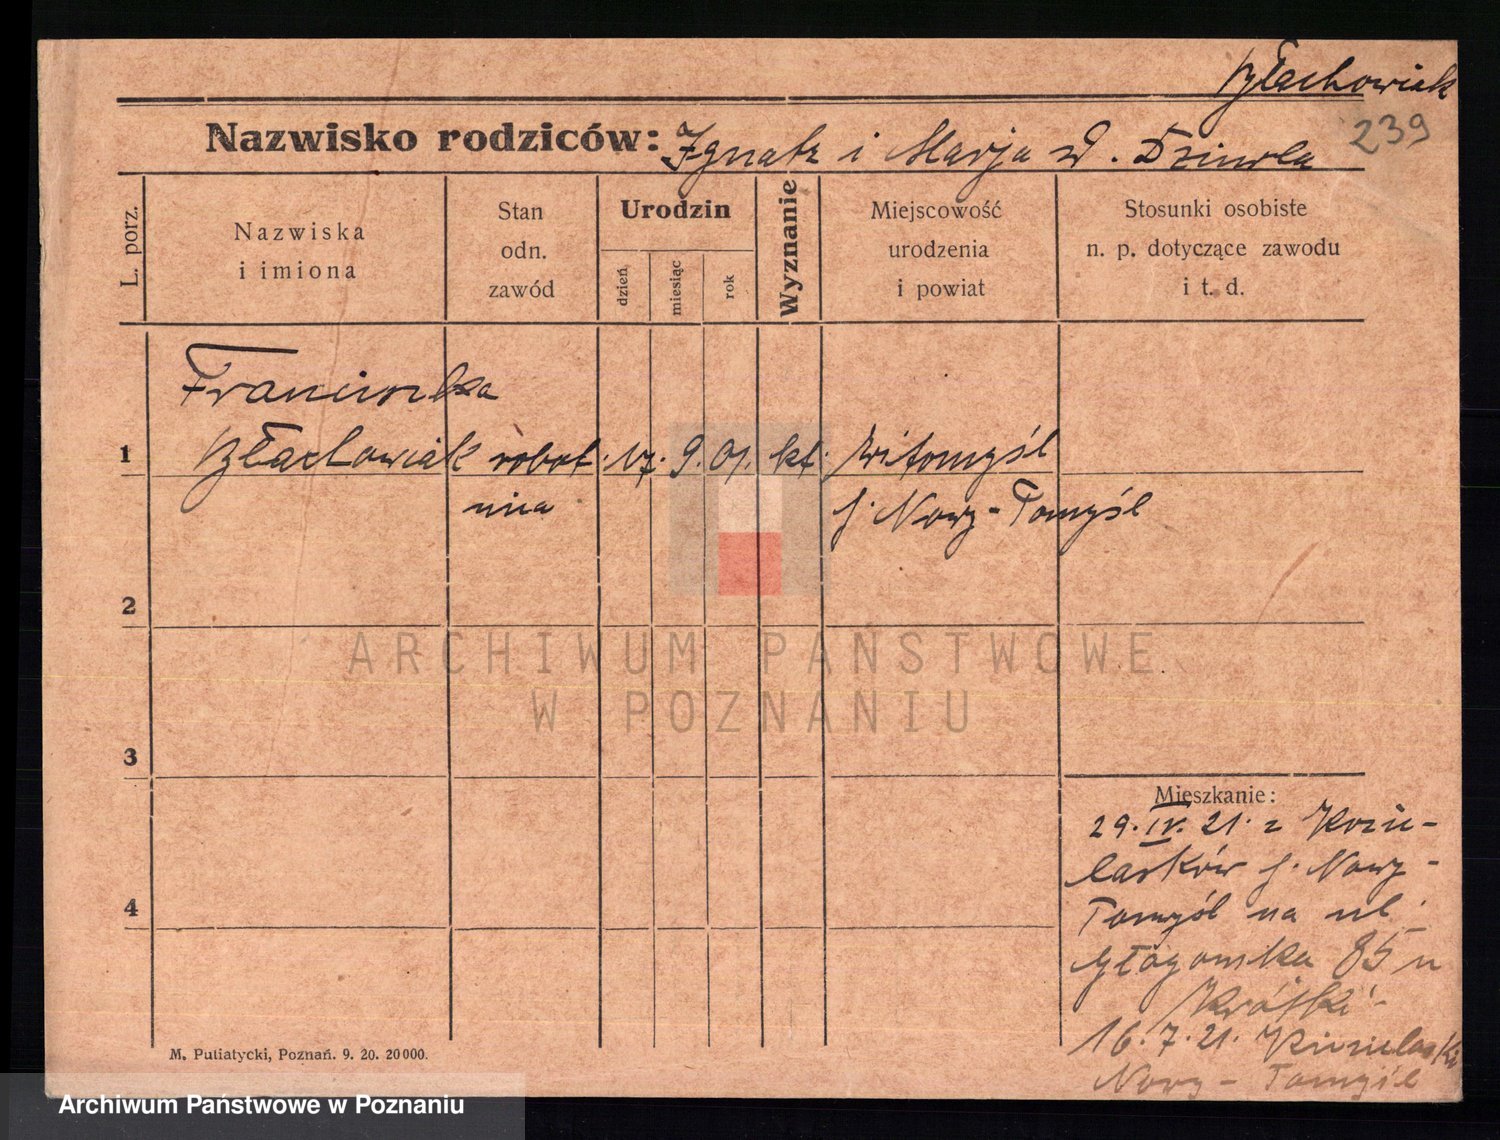 Błachowiak
239
Nazwisko rodziców: Ignatz i Marja d.
L. porz.
Nazwiska
i imiona
Stan
odn.
zawód
Urodzin
dzień
miesiąc
rok
Wyznanie
Miejscowość
urodzenia
i powiat
Stosunki osobiste
n. p. dotyczące zawodu
i t. d.
Franciszka
1 Błachowiak robot. 17. 9. 01. kt. Witomyśl
nica p. Nowy-Tomyśl
2
3
4
Mieszkanie:
29. IV. 21. z Kozie-
lasków p. Nowy-
Tomyśl na ul.
Głogowska 85 u
16. 7. 21. Kozielaski
Nowy-Tomyśl
M. Putiatycki, Poznań. 9. 20. 20000.
ARCHIWUM PAŃSTWOWE
W POZNANIU
Archiwum Państwowe w Poznaniu